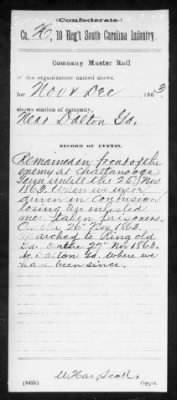 (Confederate.)
Co. H, 10 Reg't South Carolina Infantry.
Company Muster Roll
of the organization named above
for Nov & Dec, 1863
shows station of company,
Near Dalton Ga.
RECORD OF EVENTS.
Remained in front of the
enemy at Chattanooga
Tenn untill the 25 Nov
1863. When we were
driven in confusion
losing enlisted
men taken prisoners.
On the 26" Nov 1863.
marched to Ring old
Ga. On the 27" Nov 1863.
to Dalton Ga. where we
have been since.
Copyist.